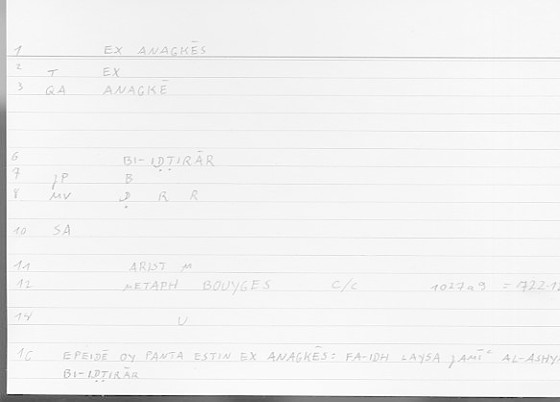 1 EX ANAGKĒS
2 T EX
3 QA ANAGKĒ
6 BI-IḌṬIRĀR
7 JP B
8 MV Ḍ R R
10 SA
11 ARIST M
12 METAPH BOUYGES C/C 1027a9 = 722.12
14 U
16 EPEIDĒ OY PANTA ESTIN EX ANAGKĒS: FA-IDH LAYSA JAMĪʿ
BI-IḌṬIRĀR